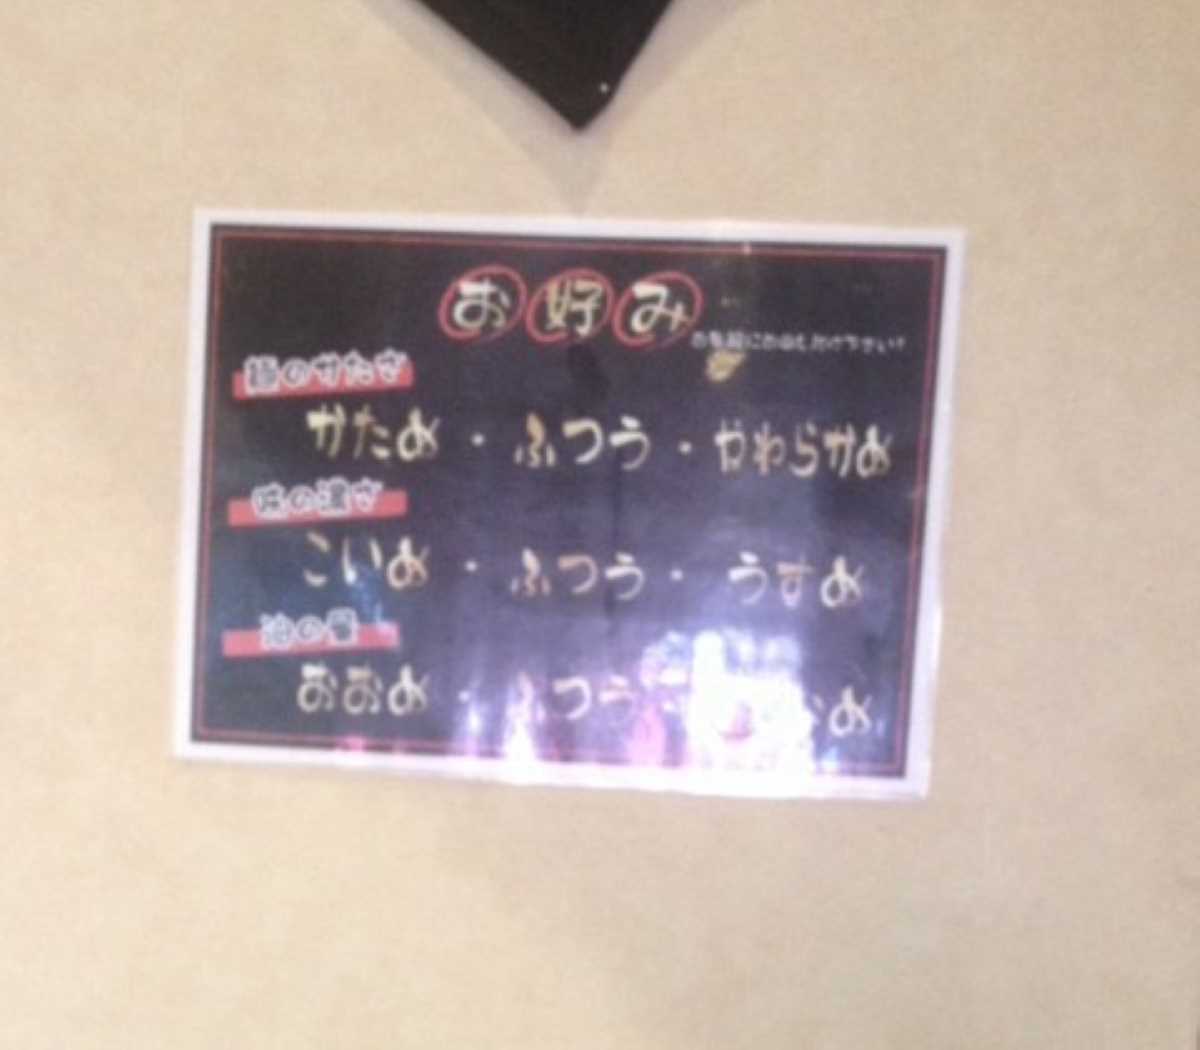 お好み
お気軽にお申し付け下さい!
麺のかたさ
かため・ふつう・やわらかめ
味の濃さ
こいめ・ふつう・うすめ
油の量
おおめ・ふつう・